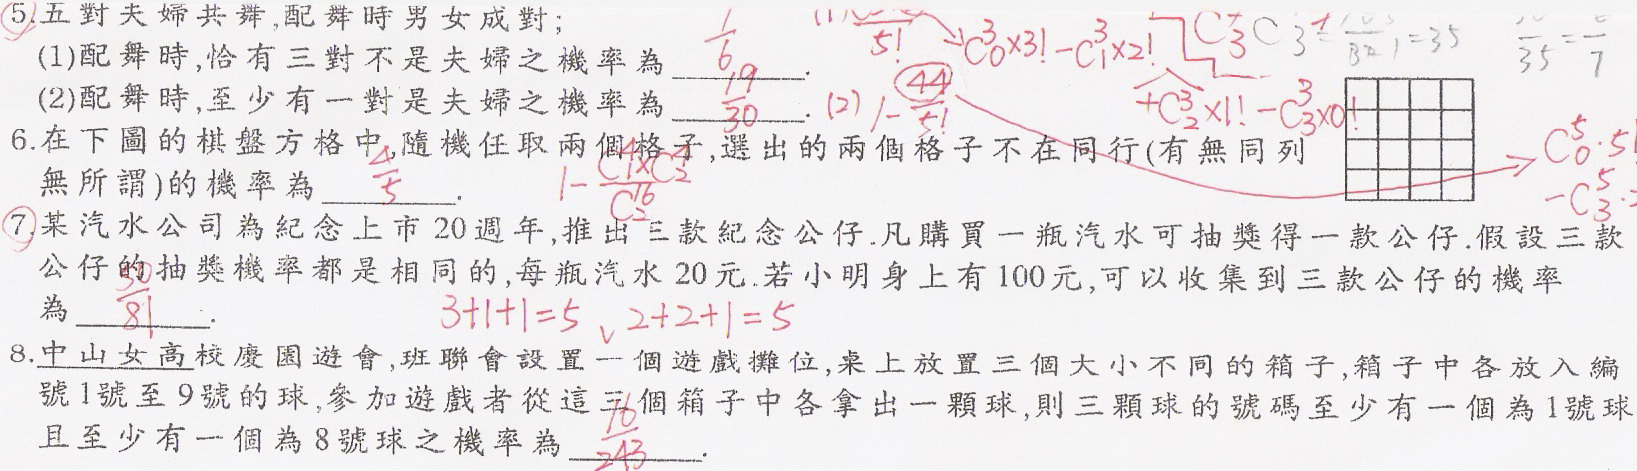 5.五對夫婦共舞,配舞時男女成對;
(1)配舞時,恰有三對不是夫婦之機率為 1/6 .
(2)配舞時,至少有一對是夫婦之機率為 19/30 . (2) 1- 44/5!
C^3_0×3! - C^3_1×2!
+C^3_2×1! - C^3_3×0!
=35
/35 = /7
6.在下圖的棋盤方格中,隨機任取兩個格子,選出的兩個格子不在同行(有無同列
C^5_0·5!
-C^5_3·
無所謂)的機率為 4/5 . 1- C^4_1×C^4_2/C^16_2
7.某汽水公司為紀念上市20週年,推出三款紀念公仔.凡購買一瓶汽水可抽獎得一款公仔.假設三款
公仔的抽獎機率都是相同的,每瓶汽水20元.若小明身上有100元,可以收集到三款公仔的機率
為 50/81 . 3+1+1=5、2+2+1=5
8.中山女高校慶園遊會,班聯會設置一個遊戲攤位,桌上放置三個大小不同的箱子,箱子中各放入編
號1號至9號的球,參加遊戲者從這三個箱子中各拿出一顆球,則三顆球的號碼至少有一個為1號球
且至少有一個為8號球之機率為 16/243 .